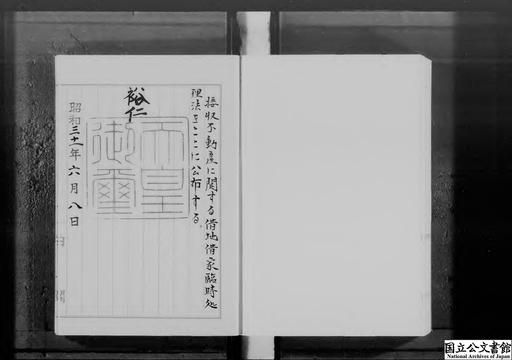 接収不動産に関する借地借家臨時処
理法をここに公布する。
裕仁
天皇
御璽
昭和三十一年六月八日
国立公文書館
National Archives of Japan